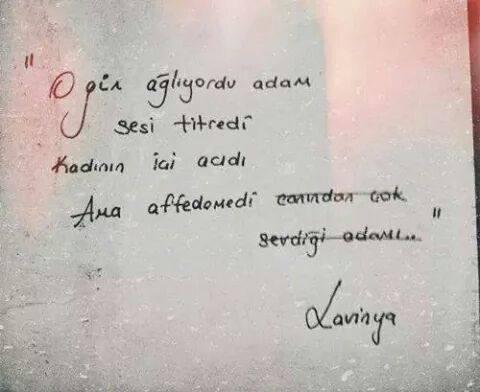 "O gün ağlıyordu adam
sesi titredi
Kadının içi acıdı
Ama affedemedi canından çok
sevdiği adamı.."
Lavinya